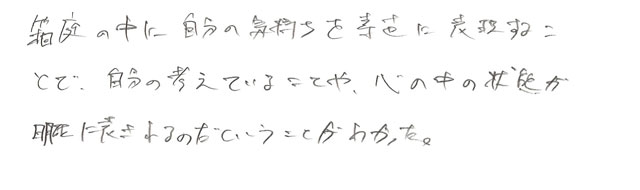 箱庭の中に自分の気持ちを幸せに表現するこ
とで、自分の考えていることや、心の中の状態が
明確に表されるのだということがわかった。